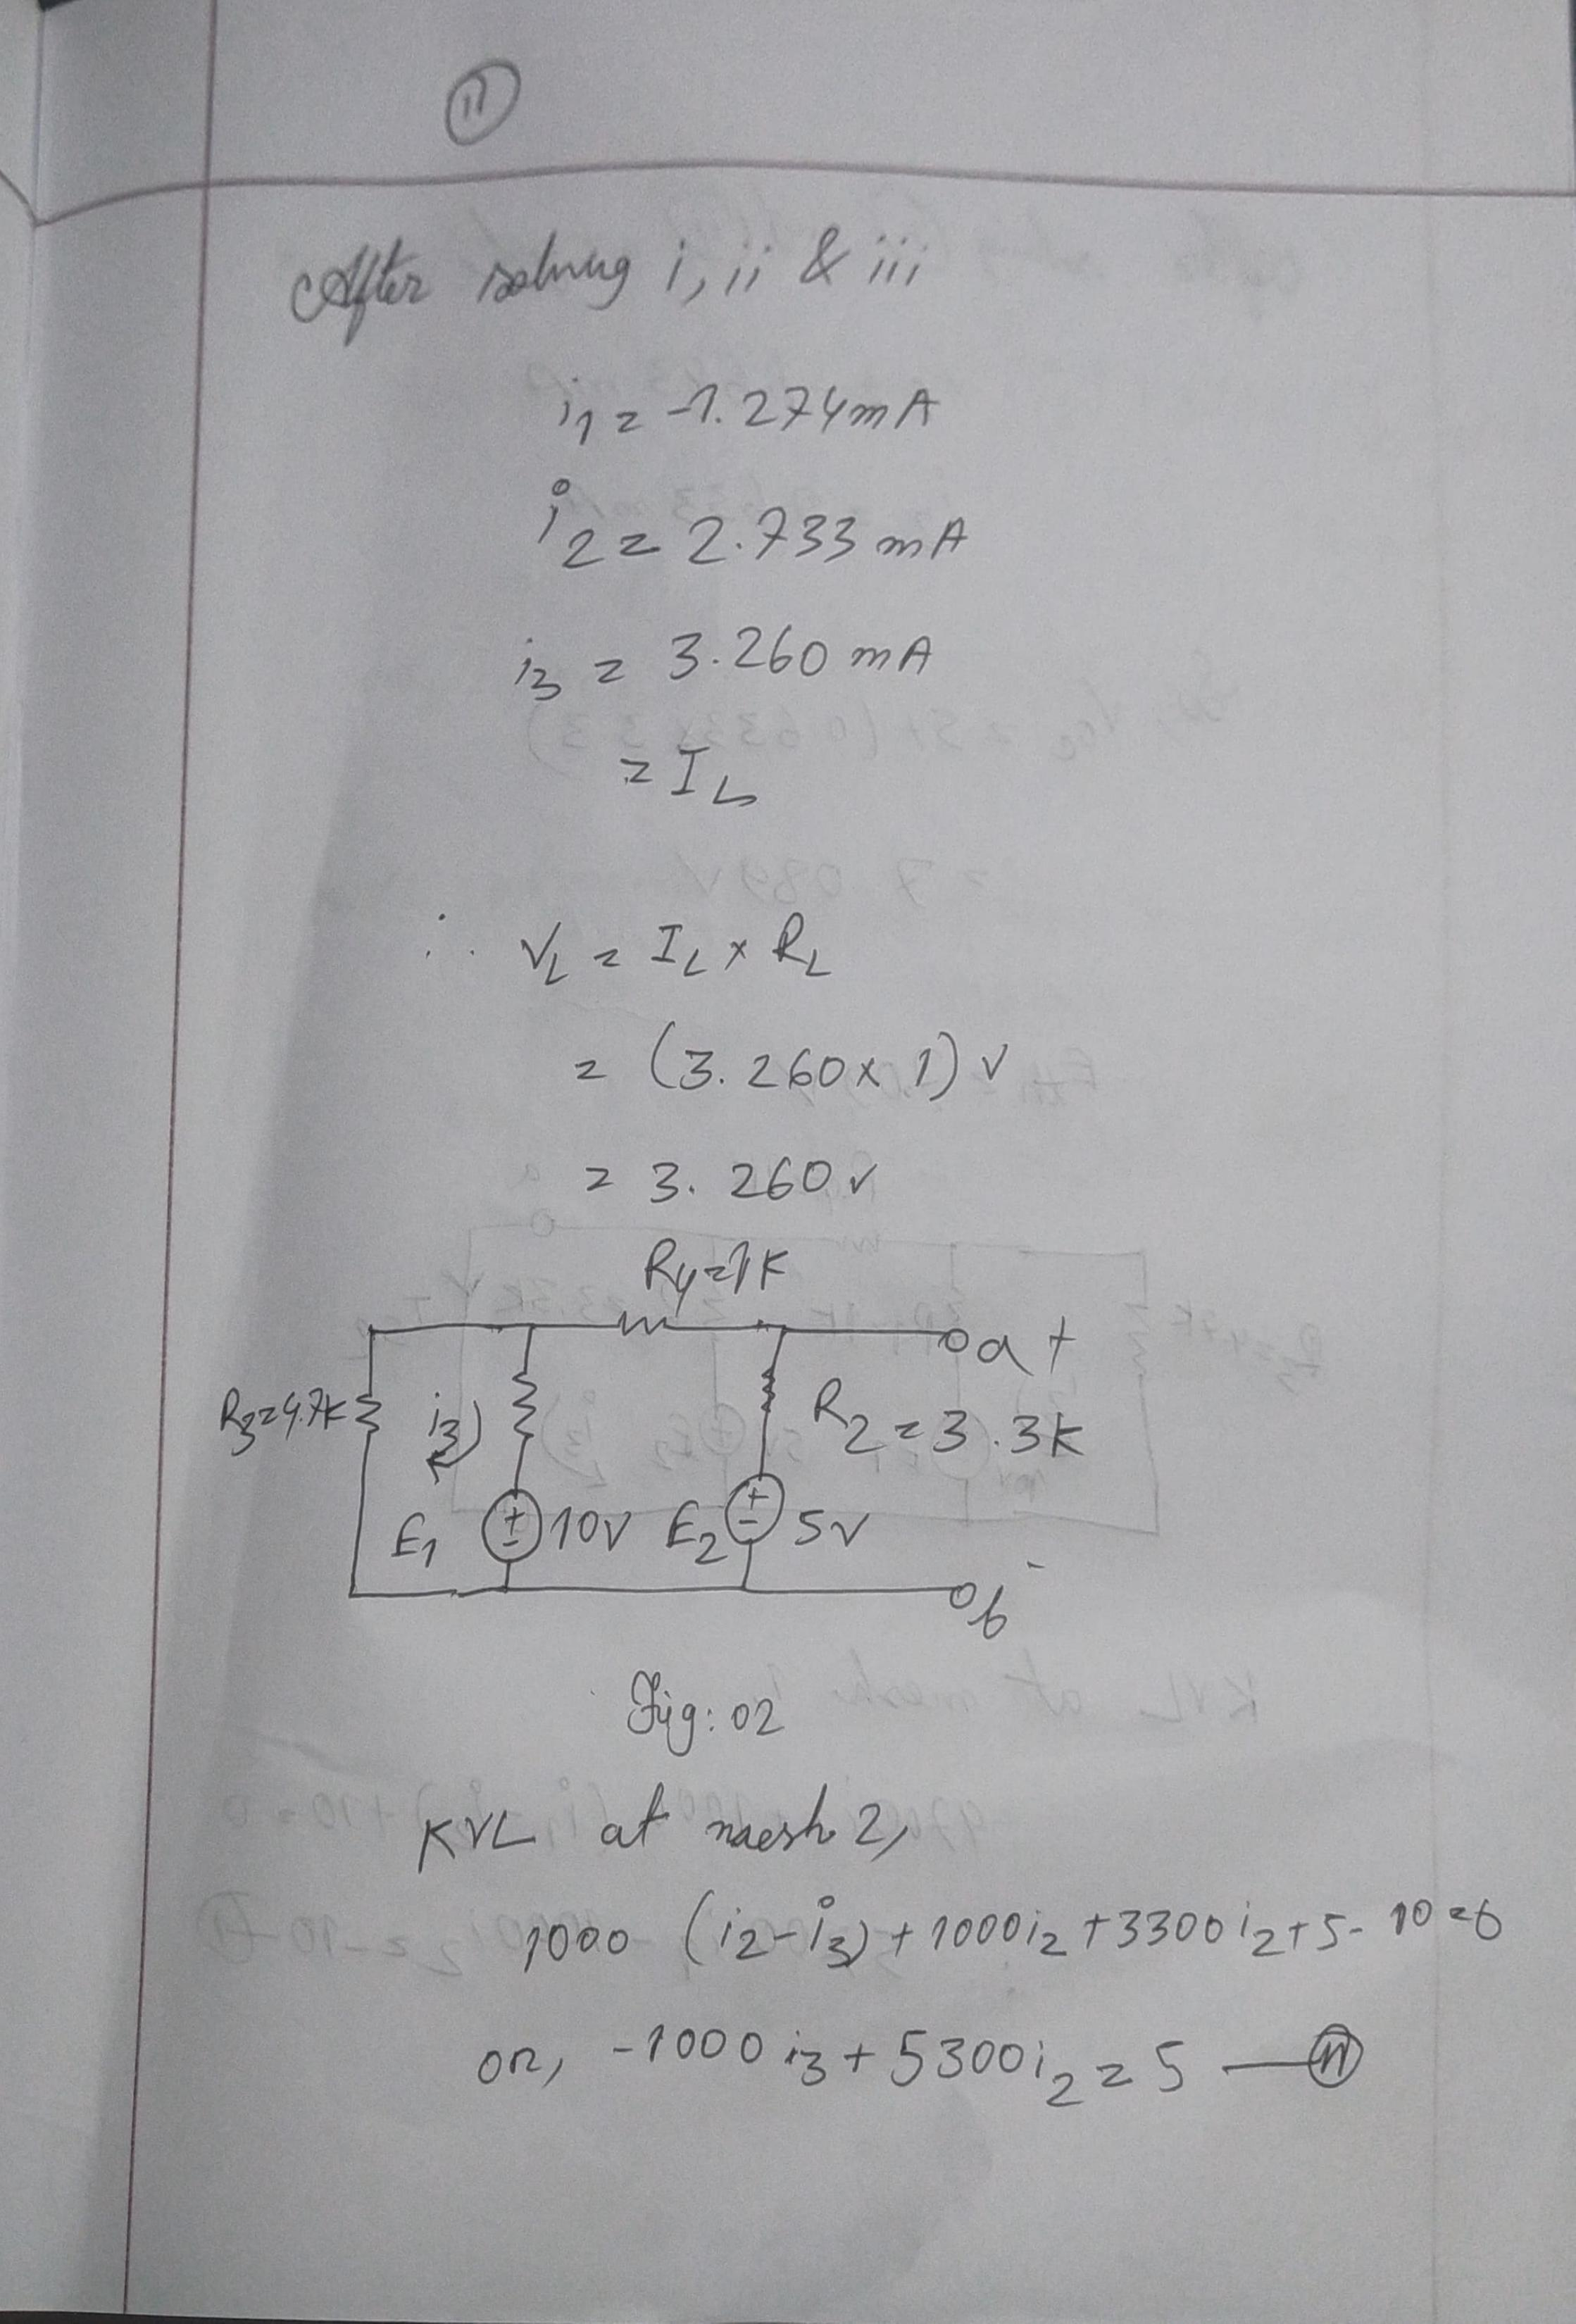 11
After solving i, ii & iii
i1 = -1.274mA
i2 = 2.733 mA
i3 = 3.260 mA
= IL
∴ VL = IL x RL
= (3.260x 1) v
= 3.260 v
R4=1K
a +
R3=4.7K
i3
R2=3.3K
E1
+
-
10V
E2
+
-
5V
b -
Fig: 02
KVL at mesh 2,
1000 (i2-i3) + 1000i2 +3300i2+5-10=0
or, -1000 i3 + 5300i2 = 5